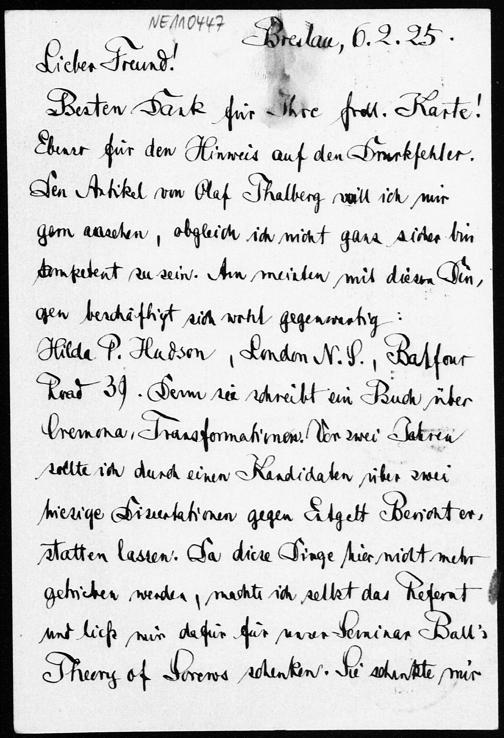 NE110447
Breslau, 6.2.25.
Lieber Freund!
Besten Dank für Ihre frdl. Karte!
Ebenso für den Hinweis auf den Druckfehler.
Den Artikel von Olaf Thalberg will ich mir
gern ansehen, obgleich ich nicht ganz sicher bin
kompetent zu sein. Am meisten mit diesen Din-
gen beschäftigt sich wohl gegenwärtig:
Hilda P. Hudson, London N. 5., Balfour
Road 39. Denn sie schreibt ein Buch über
Cremona-Transformationen. Vor zwei Jahren
sollte ich durch einen Kandidaten über zwei
hiesige Dissertationen gegen Entgelt Bericht er-
statten lassen. Da diese Dinge hier nicht mehr
getrieben werden, machte ich selbst das Referat
und ließ mir dafür für unser Seminar Ball's
Theory of Screws schenken. Sie schenkte mir